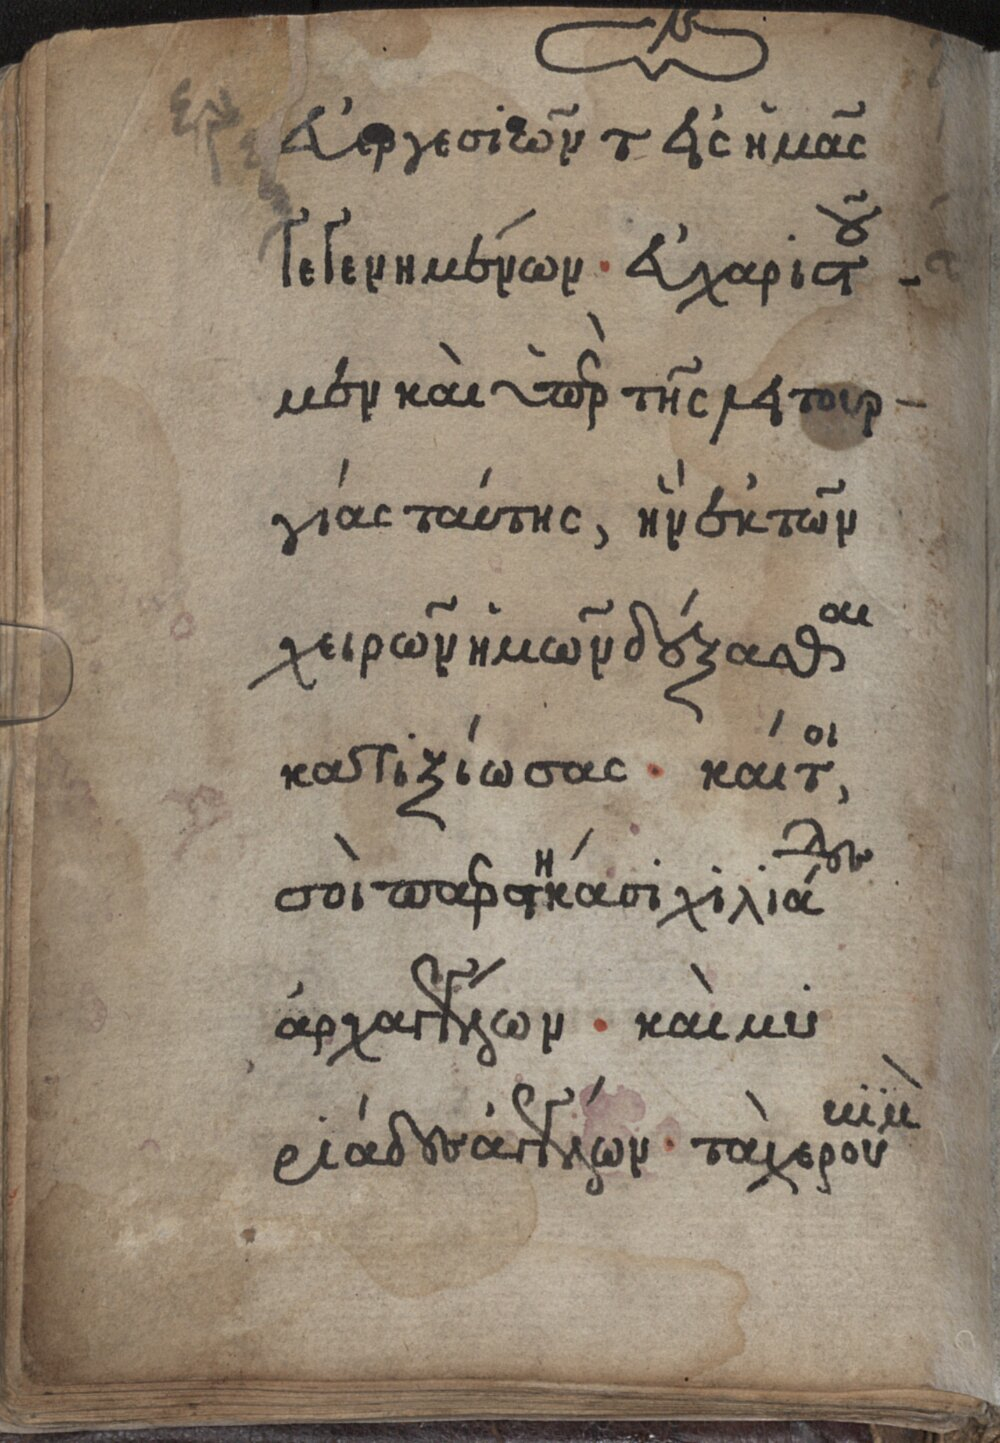 εὐεργεσιῶν τ εἰς ἡμᾶς
γεγενημένων· εὐχαριστοῦ-
μεν καὶ ὑπὲρ τῆς λειτουρ-
γίας ταύτης, ἣν ἐκ τῶν
χειρῶν ἡμῶν δέξασθαι
κατηξίωσας· καίτοι,
σοὶ παρεστήκασι χιλιάδες
ἀρχαγγέλων· καὶ μυ
ριάδες ἀγγέλων· τὰ χερου